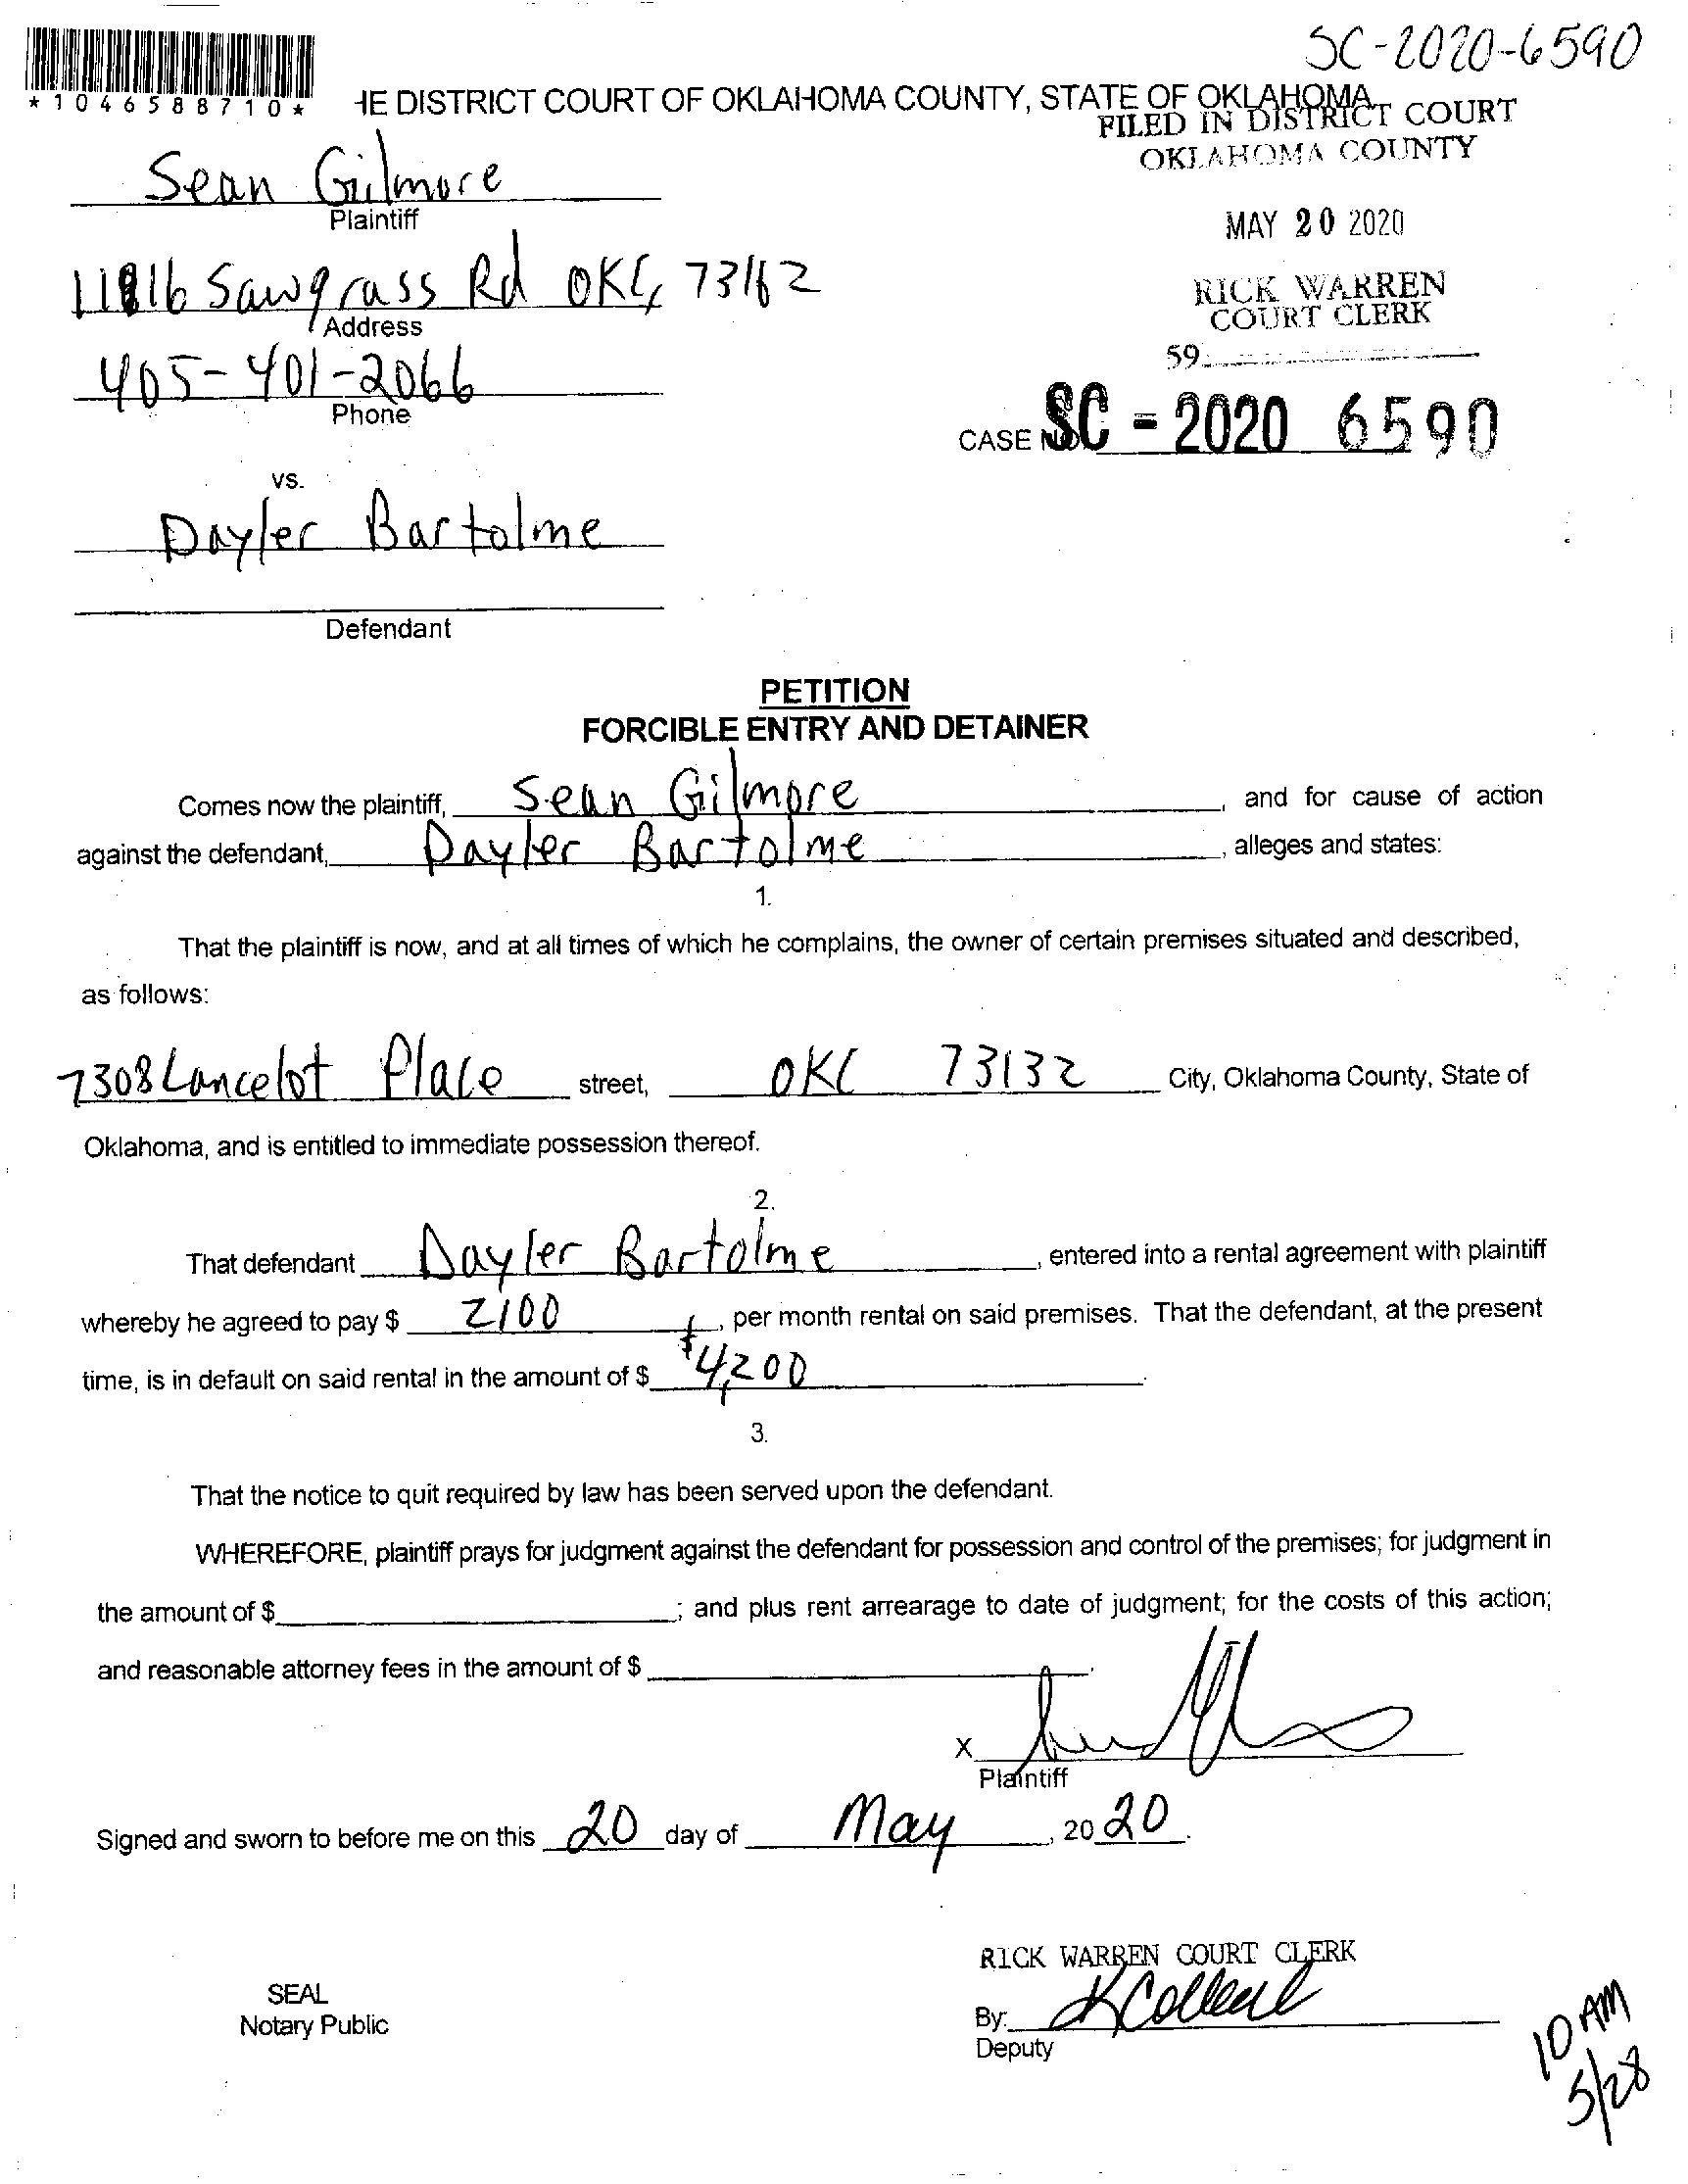 SC-2020-6590
*1046588710*
HE DISTRICT COURT OF OKLAHOMA COUNTY, STATE OF OKLAHOMA
FILED IN DISTRICT COURT
OKLAHOMA COUNTY
Sean Gilmore
Plaintiff
MAY 20 2020
11816 Sawgrass Rd OKC, 73162
Address
RICK WARREN
COURT CLERK
405-401-2066
Phone
59
CASE NO. SC - 2020 6590
vs.
Dayler Bartolme
Defendant
PETITION
FORCIBLE ENTRY AND DETAINER
Comes now the plaintiff, Sean Gilmore, and for cause of action
against the defendant, Dayler Bartolme, alleges and states:
1.
That the plaintiff is now, and at all times of which he complains, the owner of certain premises situated and described,
as follows:
7308 Lancelot Place street, OKC 73132 City, Oklahoma County, State of
Oklahoma, and is entitled to immediate possession thereof.
2.
That defendant Dayler Bartolme, entered into a rental agreement with plaintiff
whereby he agreed to pay $ 2100, per month rental on said premises. That the defendant, at the present
time, is in default on said rental in the amount of $ $4,200.
3.
That the notice to quit required by law has been served upon the defendant.
WHEREFORE, plaintiff prays for judgment against the defendant for possession and control of the premises; for judgment in
the amount of $ ; and plus rent arrearage to date of judgment; for the costs of this action;
and reasonable attorney fees in the amount of $ .
X
Plaintiff
Signed and sworn to before me on this 20 day of May, 2020.
RICK WARREN COURT CLERK
SEAL
Notary Public
By:
Deputy
10 AM
5/28